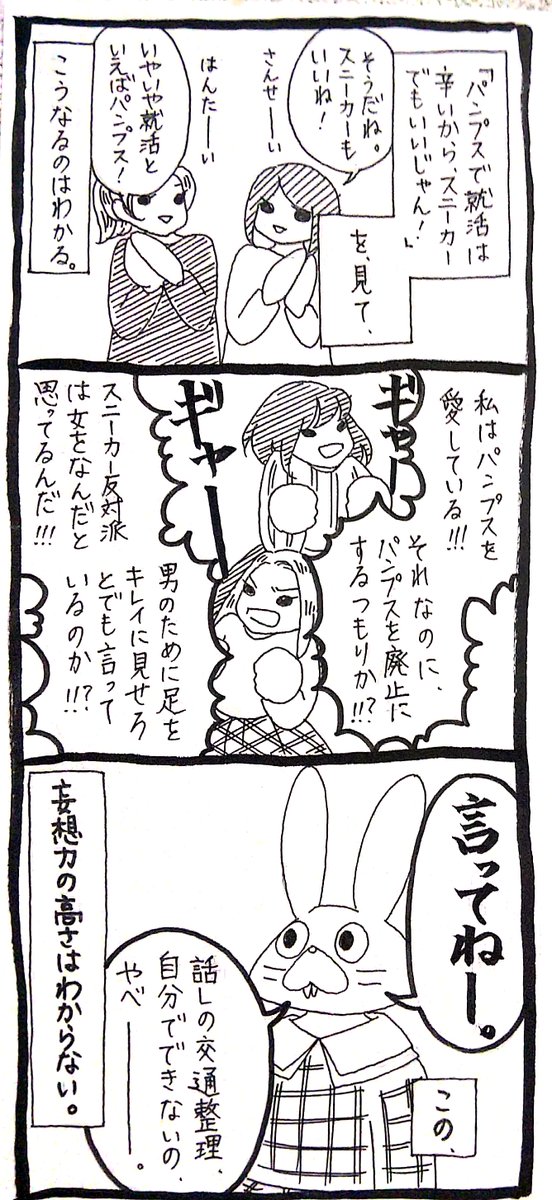 「パンプスで就活は
辛いから、スニーカー
でもいいじゃん！」
を、見て、
そうだね。
スニーカーも
いいね！
さんせーい
はんたーい
いやいや就活と
いえばパンプス！
こうなるのはわかる。
私はパンプスを
愛している!!!
それなのに、
パンプスを廃止に
するつもりか!!?
ギャー
ギャー
スニーカー反対派
は女をなんだと
思ってるんだ!!!
男のために足を
キレイに見せろ
とでも言って
いるのか!!?
言ってねー。
話しの交通整理、
自分でできないの、
やべー。
この、
妄想力の高さはわからない。